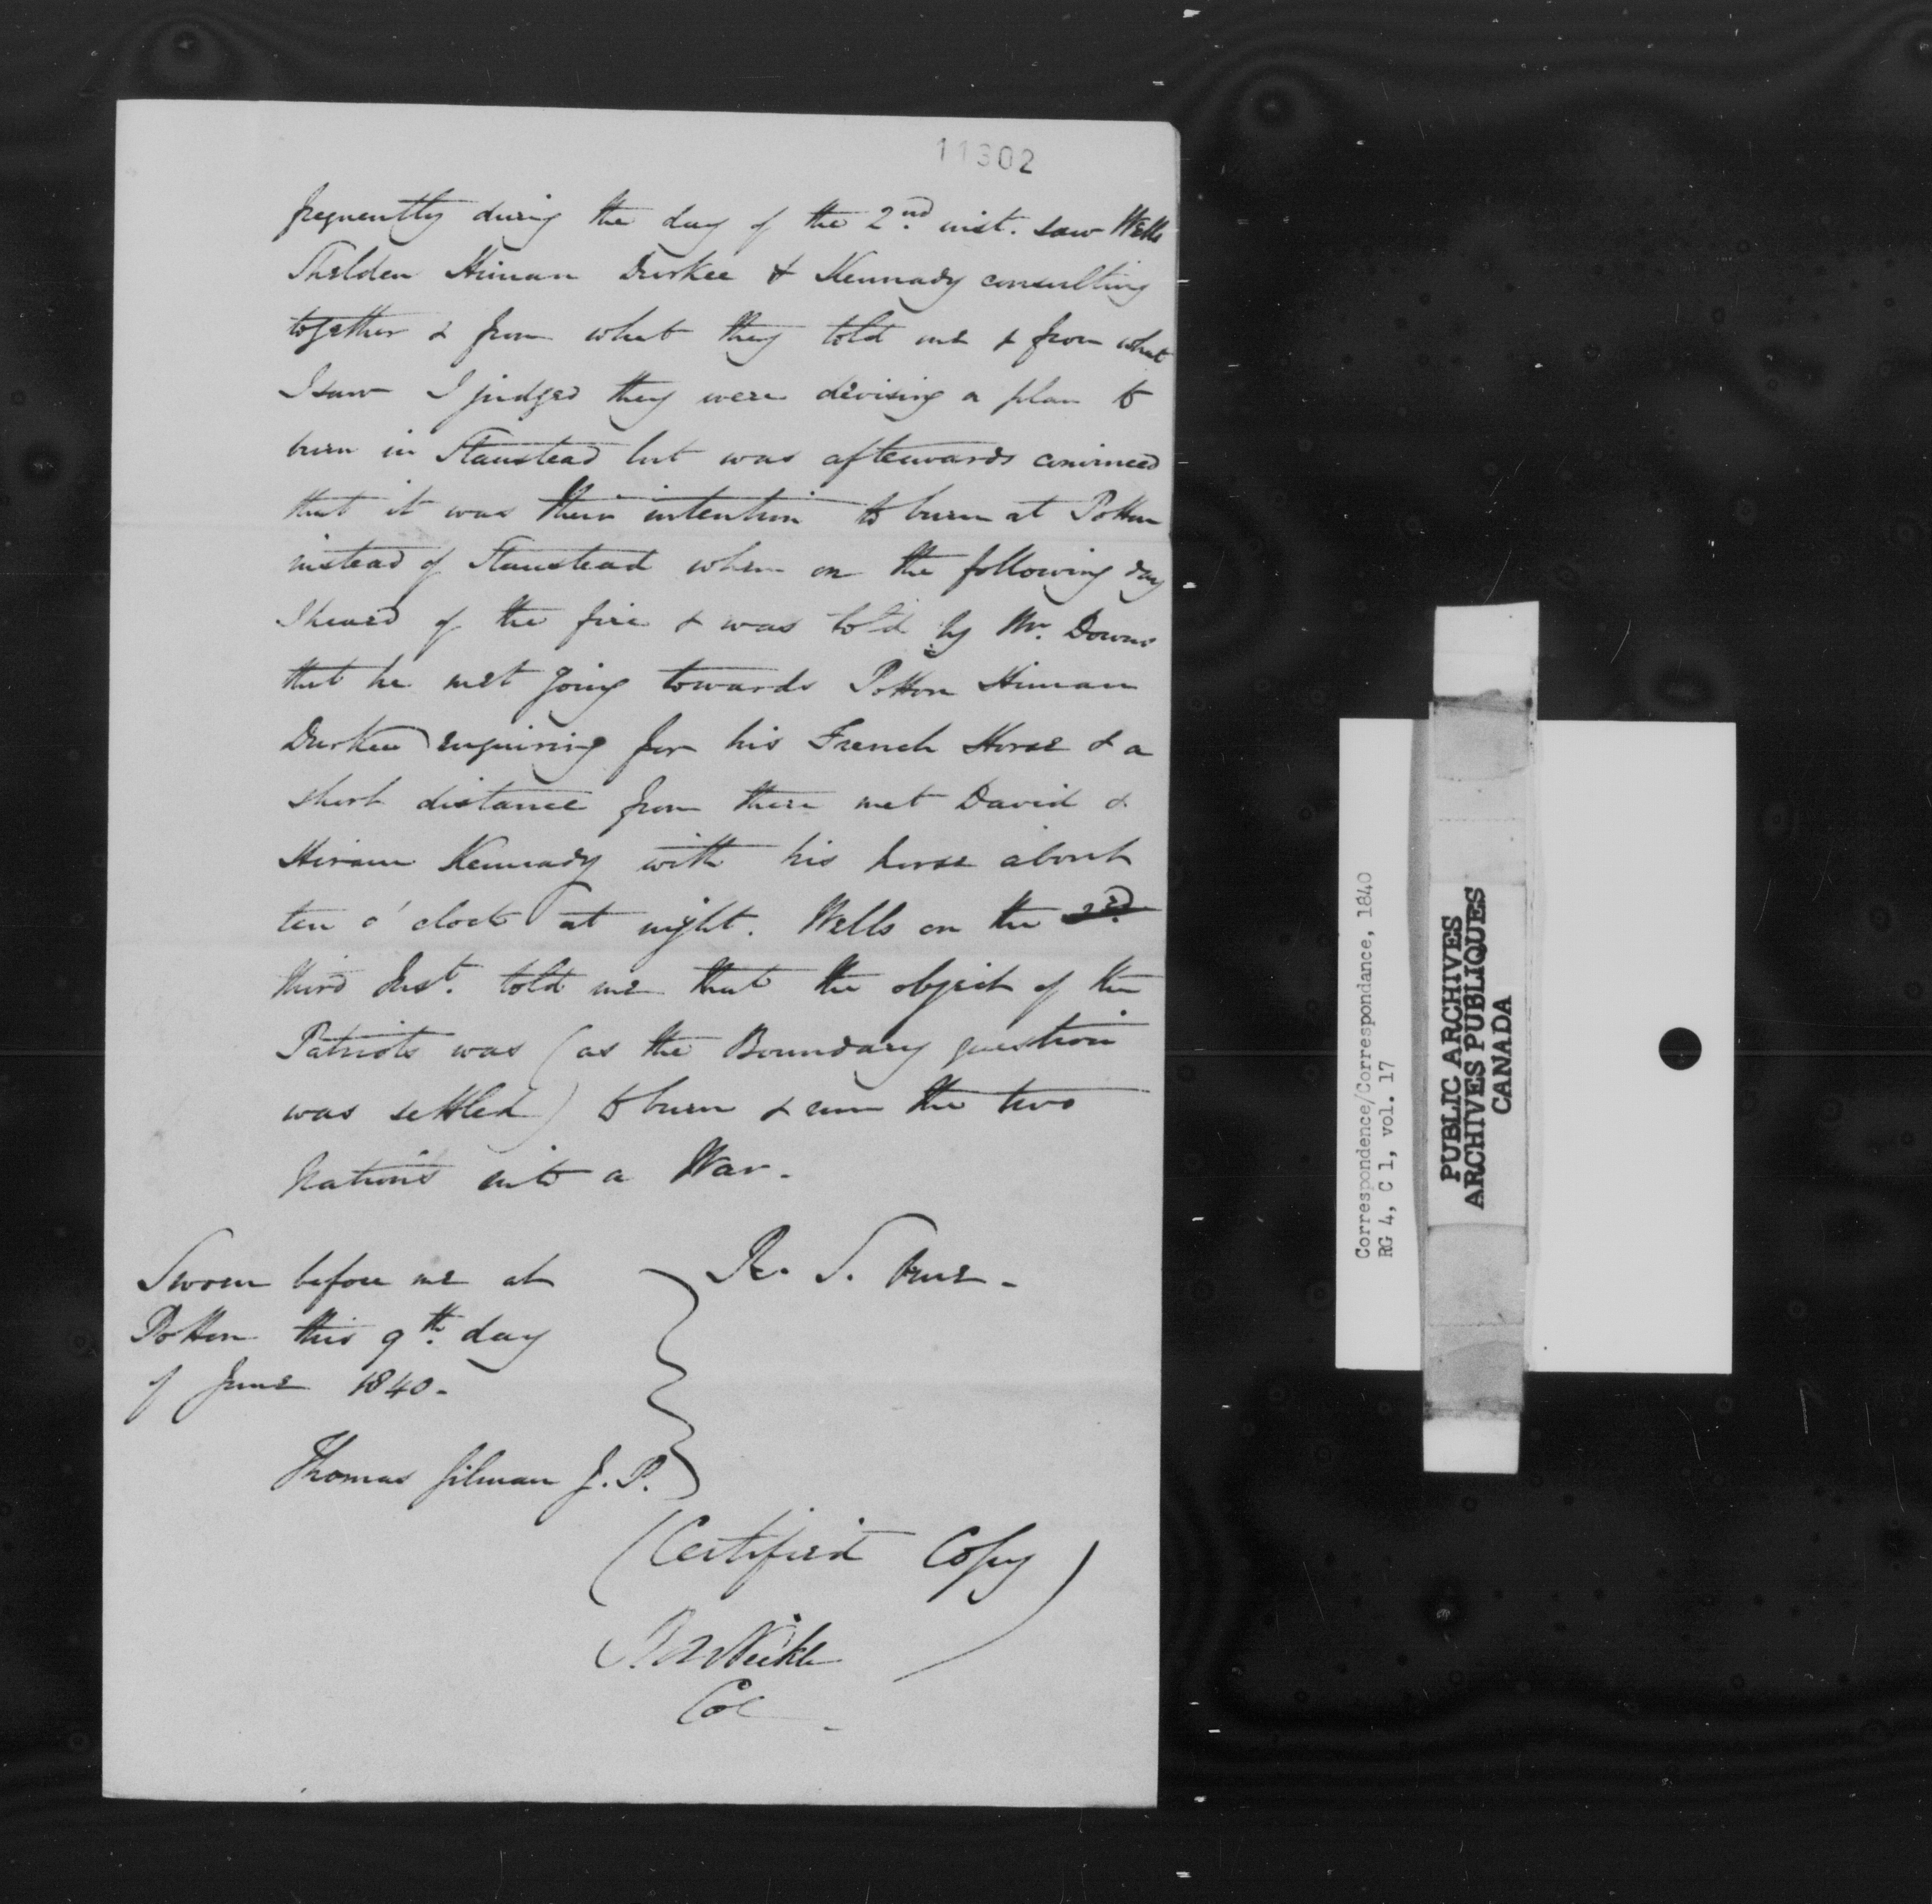 11302
frequently during the day of the 2nd. inst. saw Wells
Shelden Hinman Durkee & Kennady consulting
together & from what they told me & from what
I saw I judged they were devising a plan to
burn in Stanstead but was afterwards convinced
that it was their intention to burn at Potton
instead of Stanstead when on the following day
I heard of the fire & was told by Mr. Downs
that he met going towards Potton Hinman
Durkee enquiring for his French Horse & a
short distance from there met David &
Hiram Kennady with his horse about
ten o'clock at night. Wells on the 3rd.
third Inst. told me that the object of the
Patriots was (as the Boundary question
was settled) to burn & run the two
Nations into a War.
R. S.
Sworn before me at
Potton this 9th. day
of June 1840.
Thomas Gilman J. P.
(Certified Copy)
Col
Correspondence/Correspondance, 1840
RG 4, C 1, vol. 17
PUBLIC ARCHIVES
ARCHIVES PUBLIQUES
CANADA